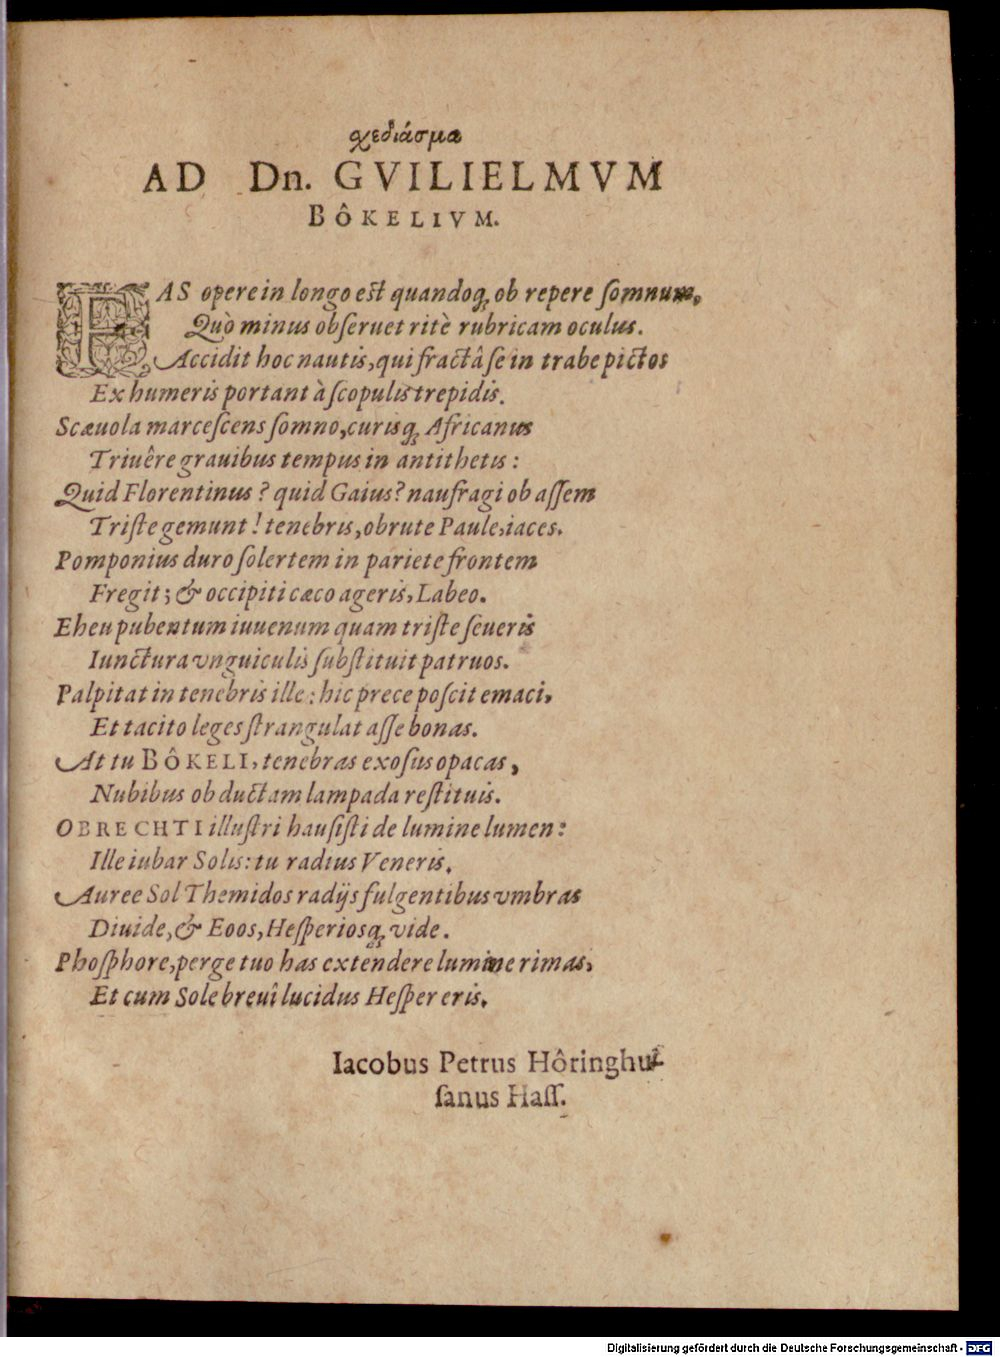 σχεδιάσμα
AD Dn. GVILIELMVM
BÔKELIVM.
FAS opere in longo est quandoq; ob repere ſomnum,
Quò minus obſeruet ritè rubricam oculus.
Accidit hoc nautis, qui fractâ ſe in trabe pictos
Ex humeris portant à ſcopulis trepidis.
Scæuola marceſcens ſomno, curisq; Africanus
Triuêre grauibus tempus in antithetis:
Quid Florentinus? quid Gaius? naufragi ob aſſem
Triſte gemunt! tenebris, obrute Paule, iaces.
Pomponius duro ſolertem in pariete frontem
Fregit; & occipiti cæco ageris, Labeo.
Eheu pubentum iuuenum quam triſte ſeueris
Iunctura vnguiculis ſubſtituit patruos.
Palpitat in tenebris ille: hic prece poſcit emaci,
Et tacito leges ſtrangulat aſſe bonas.
At tu BÔKELI, tenebras exoſus opacas,
Nubibus ob ductam lampada reſtituis.
OBRECHTI illuſtri hauſiſti de lumine lumen:
Ille iubar Solis: tu radius Veneris.
Auree Sol Themidos radijs fulgentibus vmbras
Diuide, & Eoos, Heſperiosq; vide.
Phoſphore, perge tuo has extendere lumine rimas,
Et cum Sole breuî lucidus Heſper eris.
Iacobus Petrus Hôringhu-
ſanus Haſſ.
Digitalisierung gefördert durch die Deutsche Forschungsgemeinschaft - DFG